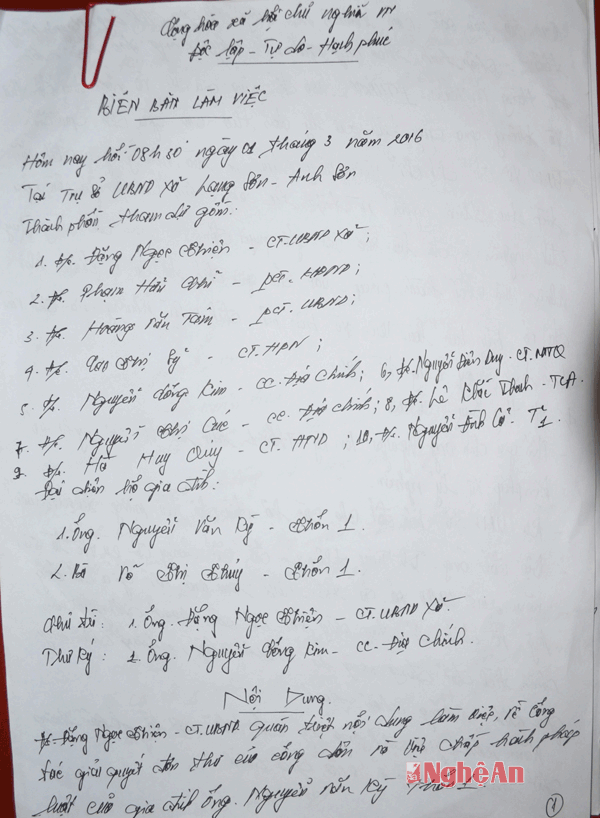 Cộng hòa xã hội chủ nghĩa VN
Độc lập - Tự do - Hạnh phúc
BIÊN BẢN LÀM VIỆC
Hôm nay hồi 08h 30' ngày 01 tháng 3 năm 2016
Tại Trụ sở UBND xã Lạng Sơn - Anh Sơn
Thành phần tham dự gồm:
1. Đ/c. Đặng Ngọc Thiện - CT. UBND Xã;
2. Đ/c. Phạm Hữu - PCT. HĐND;
3. Đ/c. Hoàng Văn Tám - PCT. UBND;
4. Đ/c. Cao Thị Kỷ - CT. HPN;
5. Đ/c. Nguyễn Đồng Kim - CC. Địa chính; 6, Đ/c. Nguyễn Duy - CT. MTTQ
7. Đ/c. Nguyễn Thị - CC. Địa chính; 8, Đ/c. Lê Thanh - TCA.
9. Đ/c. Hà Huy Quý - CT. HND; 10, Đ/c. Nguyễn Đình - T1.
Đại diện hộ gia đình:
1. Ông. Nguyễn Văn Kỳ - Thôn 1.
2. Bà Võ Thị Thủy - Thôn 1.
Chủ trì: 1. Ông. Đặng Ngọc Thiện - CT. UBND Xã.
Thư ký: 1. Ông. Nguyễn Đồng Kim - CC. Địa chính.
Nội Dung.
Đ/c. Đặng Ngọc Thiện - CT. UBND quán triệt nội dung làm việc, về công
tác giải quyết đơn thư của công dân và chấp hành pháp
luật của gia đình ông. Nguyễn Văn Kỳ Thôn 1.
Báo Nghệ An
1